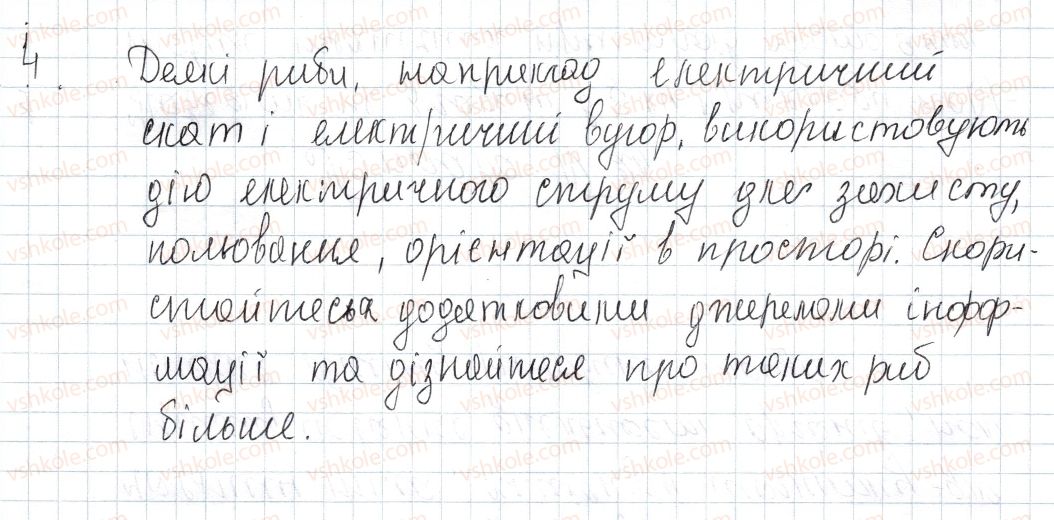 4. Деякі риби, наприклад електричний
скат і електричний вугор, використовують
дію електричного струму для захисту,
полювання, орієнтації в просторі. Скори-
стайтеся додатковими джерелами інфор-
мації та дізнайтеся про таких риб
більше.